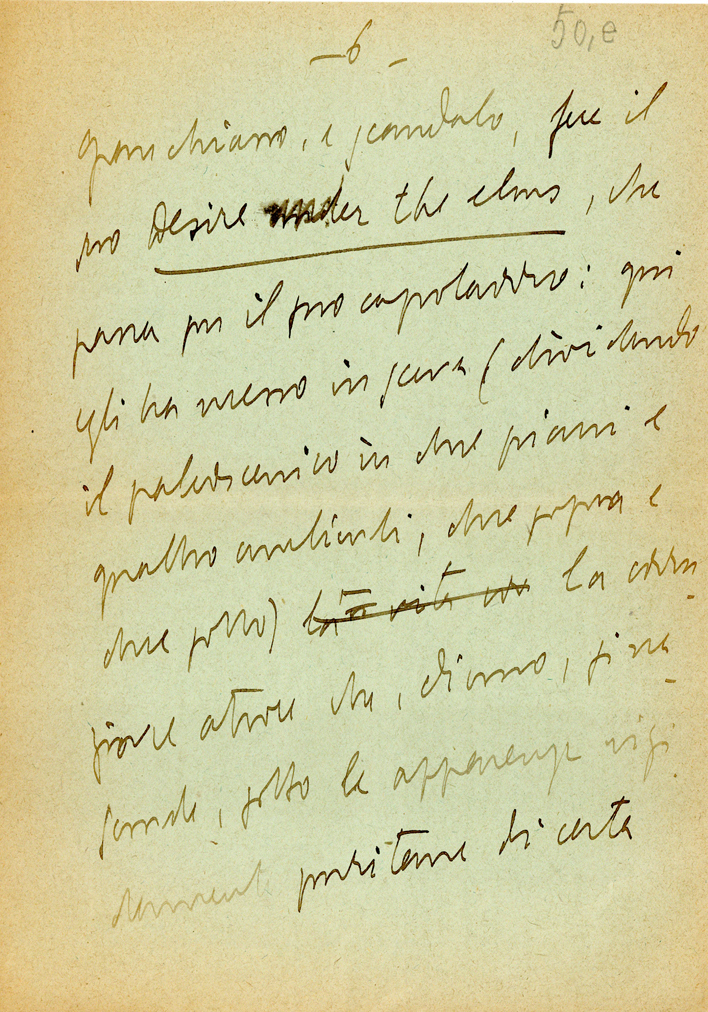 — 6 —
50,e
chiasso, e scandalo, fece il
suo Desire under the elms, che
passa per il suo capolavoro: qui
egli ha messo in scena (dividendo
il palcoscenico in due piani e
quattro ambienti, due sopra e
due sotto) la vita la corru
zione atroce che, dicono, si na
sconde, sotto le apparenze rigi
damente puritane di certa